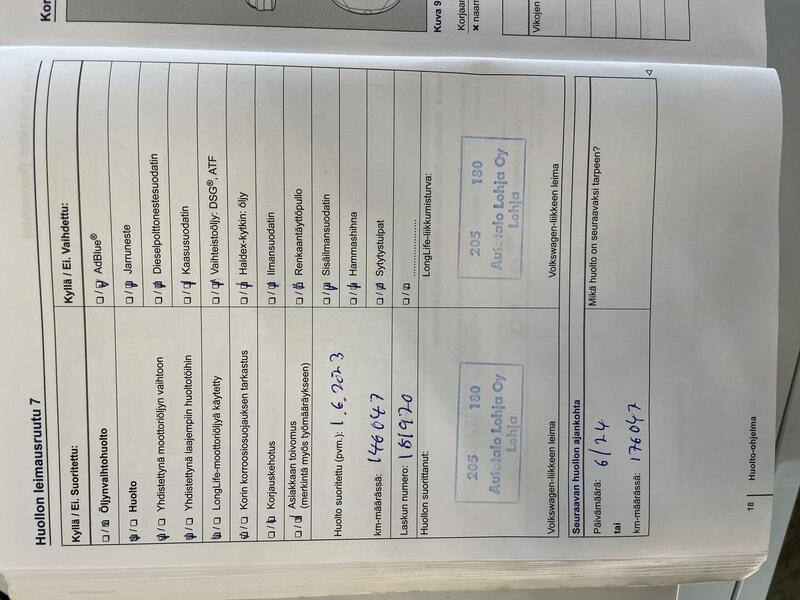 Huollon leimausruutu 7
Kyllä / Ei. Suoritettu:
☐ / ☑ Öljynvaihtohuolto
☑ / ☐ Huolto
☑ / ☐ Yhdistettynä moottoriöljyn vaihtoon
☑ / ☐ Yhdistettynä laajempiin huoltotöihin
☑ / ☐ LongLife-moottoriöljyä käytetty
☑ / ☐ Korin korroosiosuojauksen tarkastus
☐ / ☑ Korjauskehotus
☐ / ☑ Asiakkaan toivomus
(merkintä myös työmääräykseen)
Huolto suoritettu (pvm.): 1.6.2023
km-määrässä: 146047
Laskun numero: 161920
Huollon suorittanut:
205 180
Autotalo Lohja Oy
Lohja
Volkswagen-liikkeen leima
Kyllä / Ei. Vaihdettu:
☐ / ☑ AdBlue®
☐ / ☑ Jarruneste
☐ / ☑ Dieselpolttonestesuodatin
☐ / ☑ Kaasusuodatin
☐ / ☑ Vaihteistoöljy: DSG®, ATF
☐ / ☑ Haldex-kytkin: öljy
☐ / ☑ Ilmansuodatin
☐ / ☑ Renkaantäyttöpullo
☐ / ☑ Sisäilmansuodatin
☐ / ☑ Hammashihna
☐ / ☑ Sytytystulpat
☐ / ☐ ......................
LongLife-liikkumisturva:
205 180
Autotalo Lohja Oy
Lohja
Volkswagen-liikkeen leima
Seuraavan huollon ajankohta
Päivämäärä: 6/24
tai
km-määrässä: 176047
Mikä huolto on seuraavaksi tarpeen?
18 Huolto-ohjelma
Kor
Kuva 9
Korjaar
× naarn
Vikojen